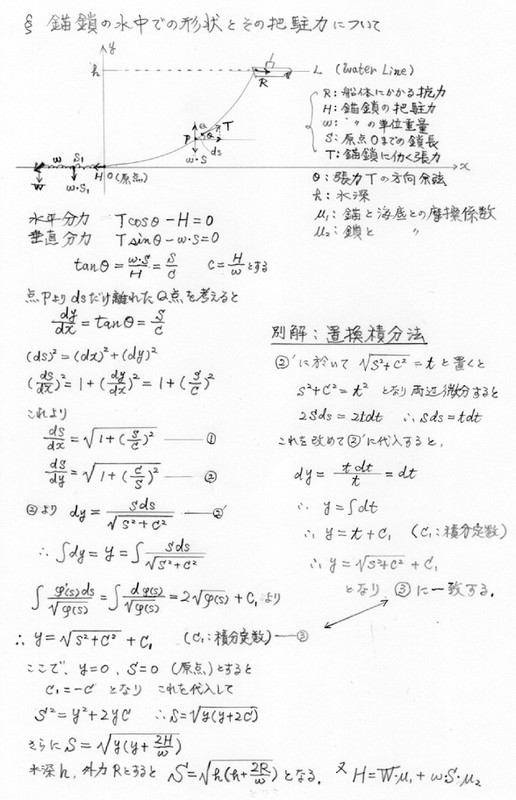 § 錨鎖の水中での形状とその把駐力について
y
h
L (Water Line)
R
Q T
P θ
ds
w·S
w S₁
W w·S₁
H O(原点)
x
R: 船体にかかる抗力
H: 錨鎖の把駐力
w: 〃 の単位重量
S: 原点Oまでの鎖長
T: 錨鎖に働く張力
θ: 張力Tの方向余弦
h: 水深
μ₁: 錨と海底との摩擦係数
μ₂: 鎖と 〃
水平分力 Tcosθ−H=0
垂直分力 Tsinθ−w·S=0
tanθ = w·S/H = S/C C = H/w とする
点Pよりdsだけ離れたQ点を考えると
dy/dx = tanθ = S/C
(ds)² = (dx)² + (dy)²
(ds/dx)² = 1 + (dy/dx)² = 1 + (S/C)²
これより
ds/dx = √1 + (S/C)² ―― ①
ds/dy = √1 + (C/S)² ―― ②
②より dy = Sds/√S²+C² ―― ②'
∴ ∫dy = y = ∫ Sds/√S²+C²
∫ φ'(s)ds/√φ(s) = ∫ dφ(s)/√φ(s) = 2√φ(s) + C₁ より
∴ y = √S²+C² + C₁ (C₁: 積分定数) ― ③
ここで、y=0、S=0 (原点)とすると
C₁=−C となり これを代入して
S² = y² + 2yC ∴ S = √y(y+2C)
さらに S = √y(y+2H/w)
水深h、外力Rとすると S = √h(h+2R/w) となる。 又 H = W·μ₁ + w·S·μ₂
別解: 置換積分法
②'に於いて √S²+C² = t と置くと
S²+C² = t² となり両辺微分すると
2Sds = 2tdt ∴ Sds = tdt
これを改めて②'に代入すると、
dy = tdt/t = dt
∴ y = ∫dt
∴ y = t + C₁ (C₁: 積分定数)
∴ y = √S²+C² + C₁
となり ③に一致する。